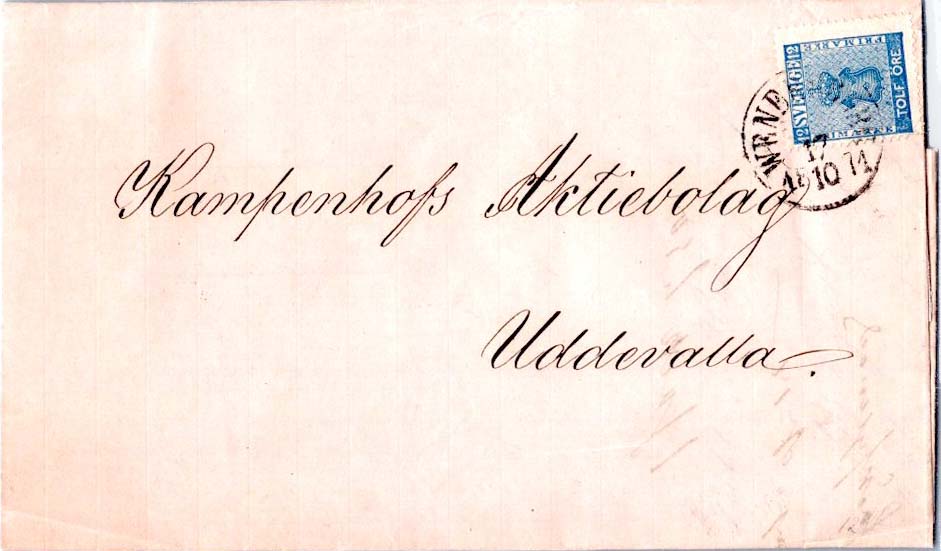 SVERIGE
12
12
FRIMÄRKE
TOLF ÖRE.
17
10
Kampenhofs Aktiebolag
Uddevalla.